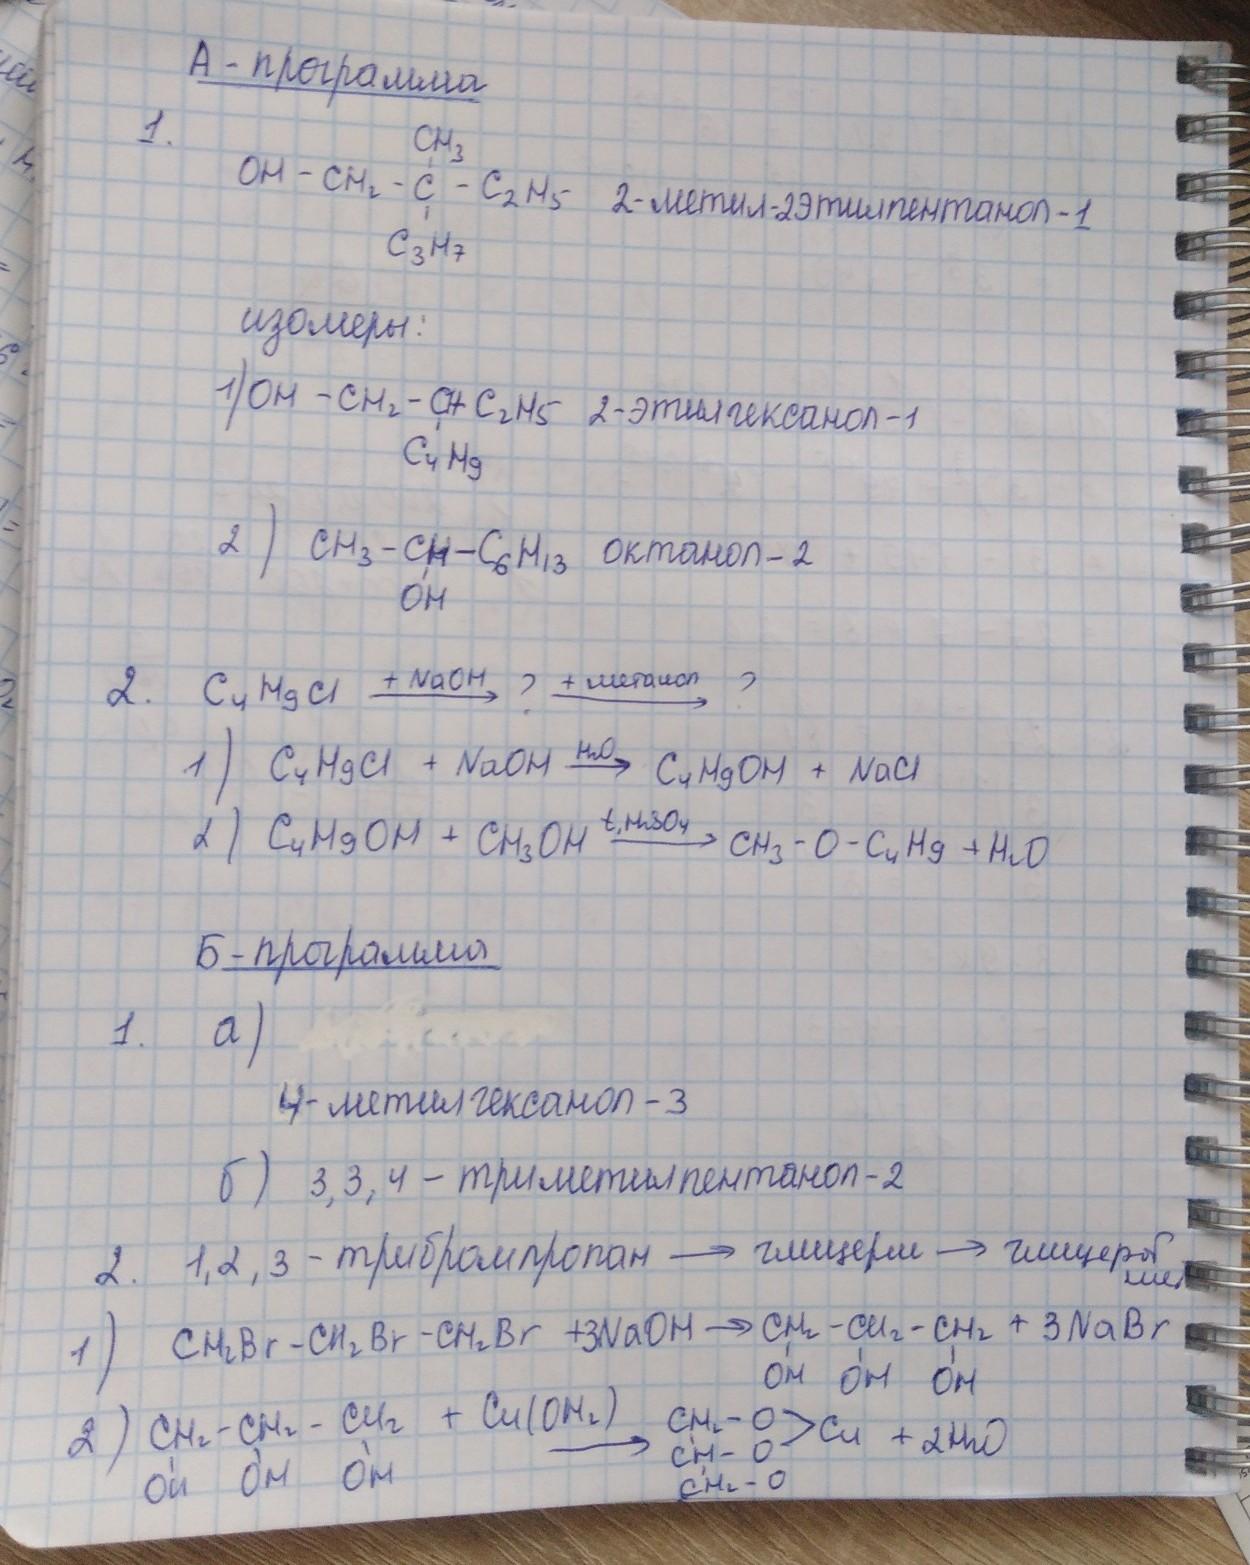 А - программа
1.
CH3
OH - CH2 - C - C2H5 2-метил-2этилпентанол-1
C3H7
изомеры:
1) OH - CH2 - CH C2H5 2-этилгексанол-1
C4H9
2) CH3 - CH - C6H13 октанол-2
OH
2. C4H9Cl + NaOH → ? + метанол → ?
1) C4H9Cl + NaOH H2O → C4H9OH + NaCl
2) C4H9OH + CH3OH t, H2SO4 → CH3 - O - C4H9 + H2O
Б - программа
1. а)
4-метилгексанол-3
б) 3,3,4 - триметилпентанол-2
2. 1,2,3 - трибромпропан → глицерин →
1) CH2Br - CH2Br - CH2Br + 3NaOH → CH2 - CH2 - CH2 + 3NaBr
OH OH OH
2) CH2 - CH2 - CH2 + Cu(OH2) → CH2 - O > Cu + 2H2O
OH OH OH CH - O
CH2 - O